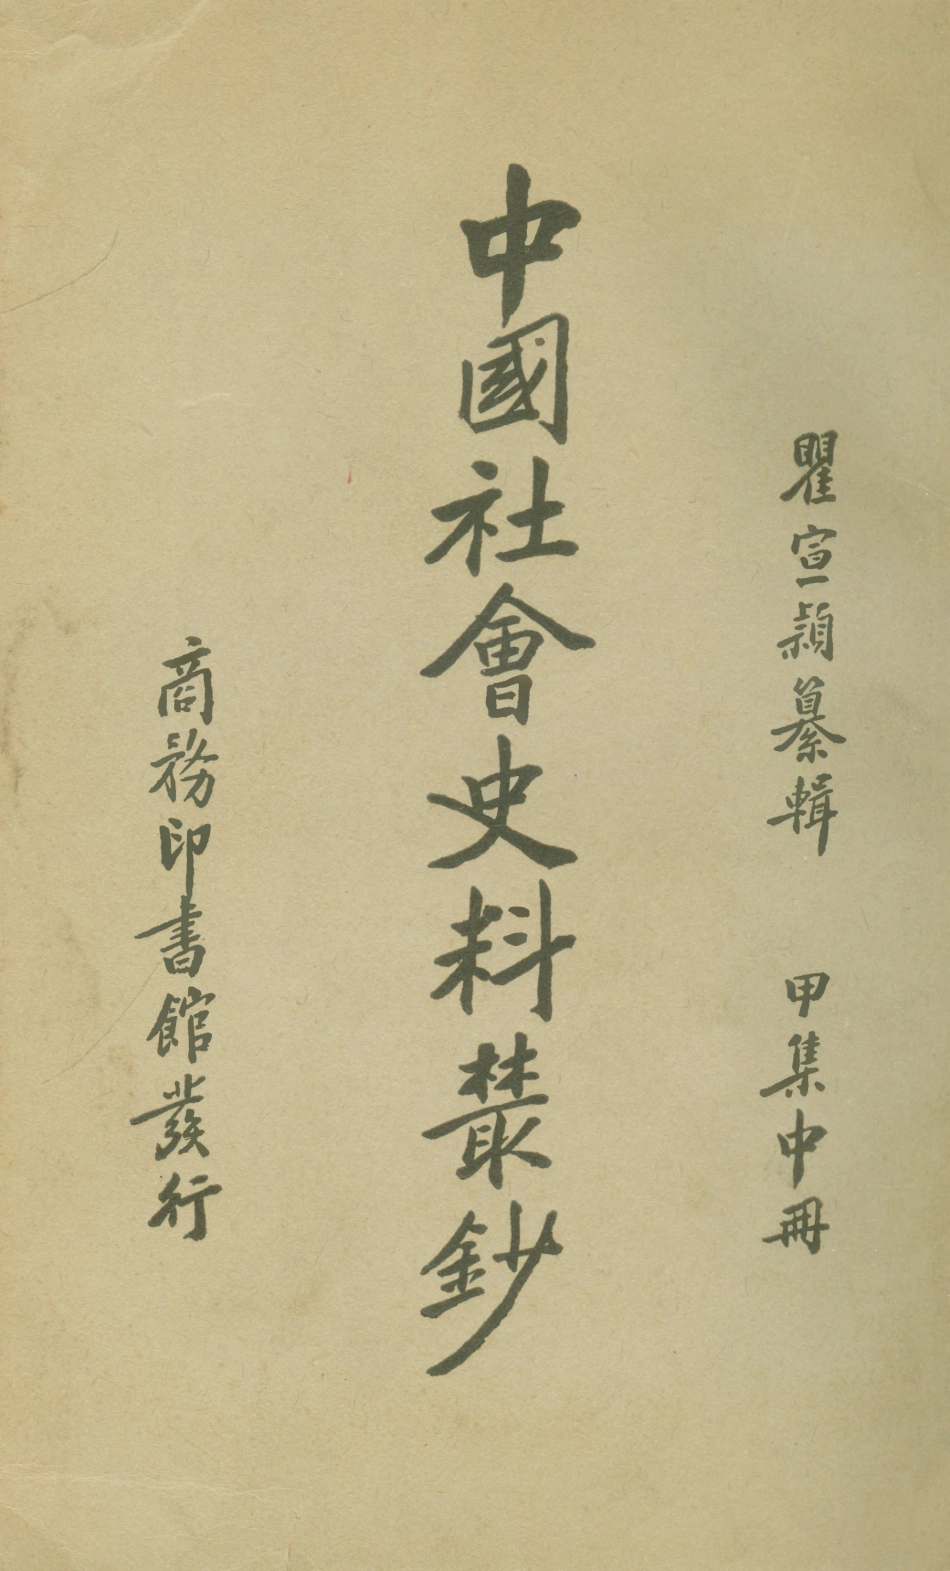 瞿宣穎纂輯　甲集中冊
中國社會史料叢鈔
商務印書館發行